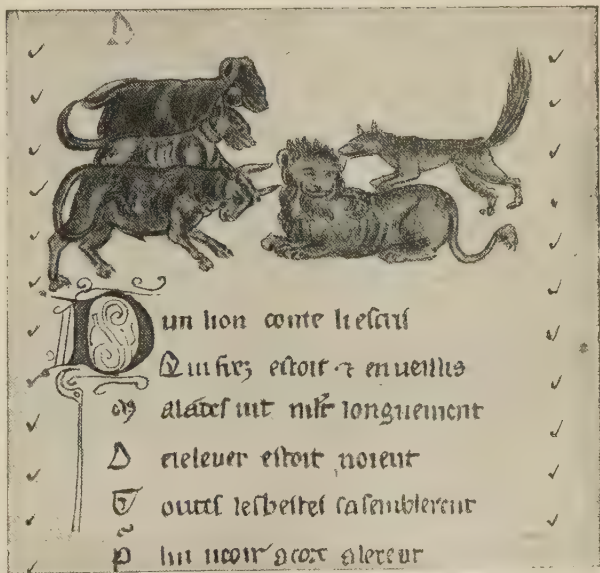 D
Dun lion conte li escris
Qui frez estoit ⁊ enueillis
Malades iut mlt longuement
De relever estoit noient
Toutes les bestes sasemblerent
P lui ueoir a cort alerent